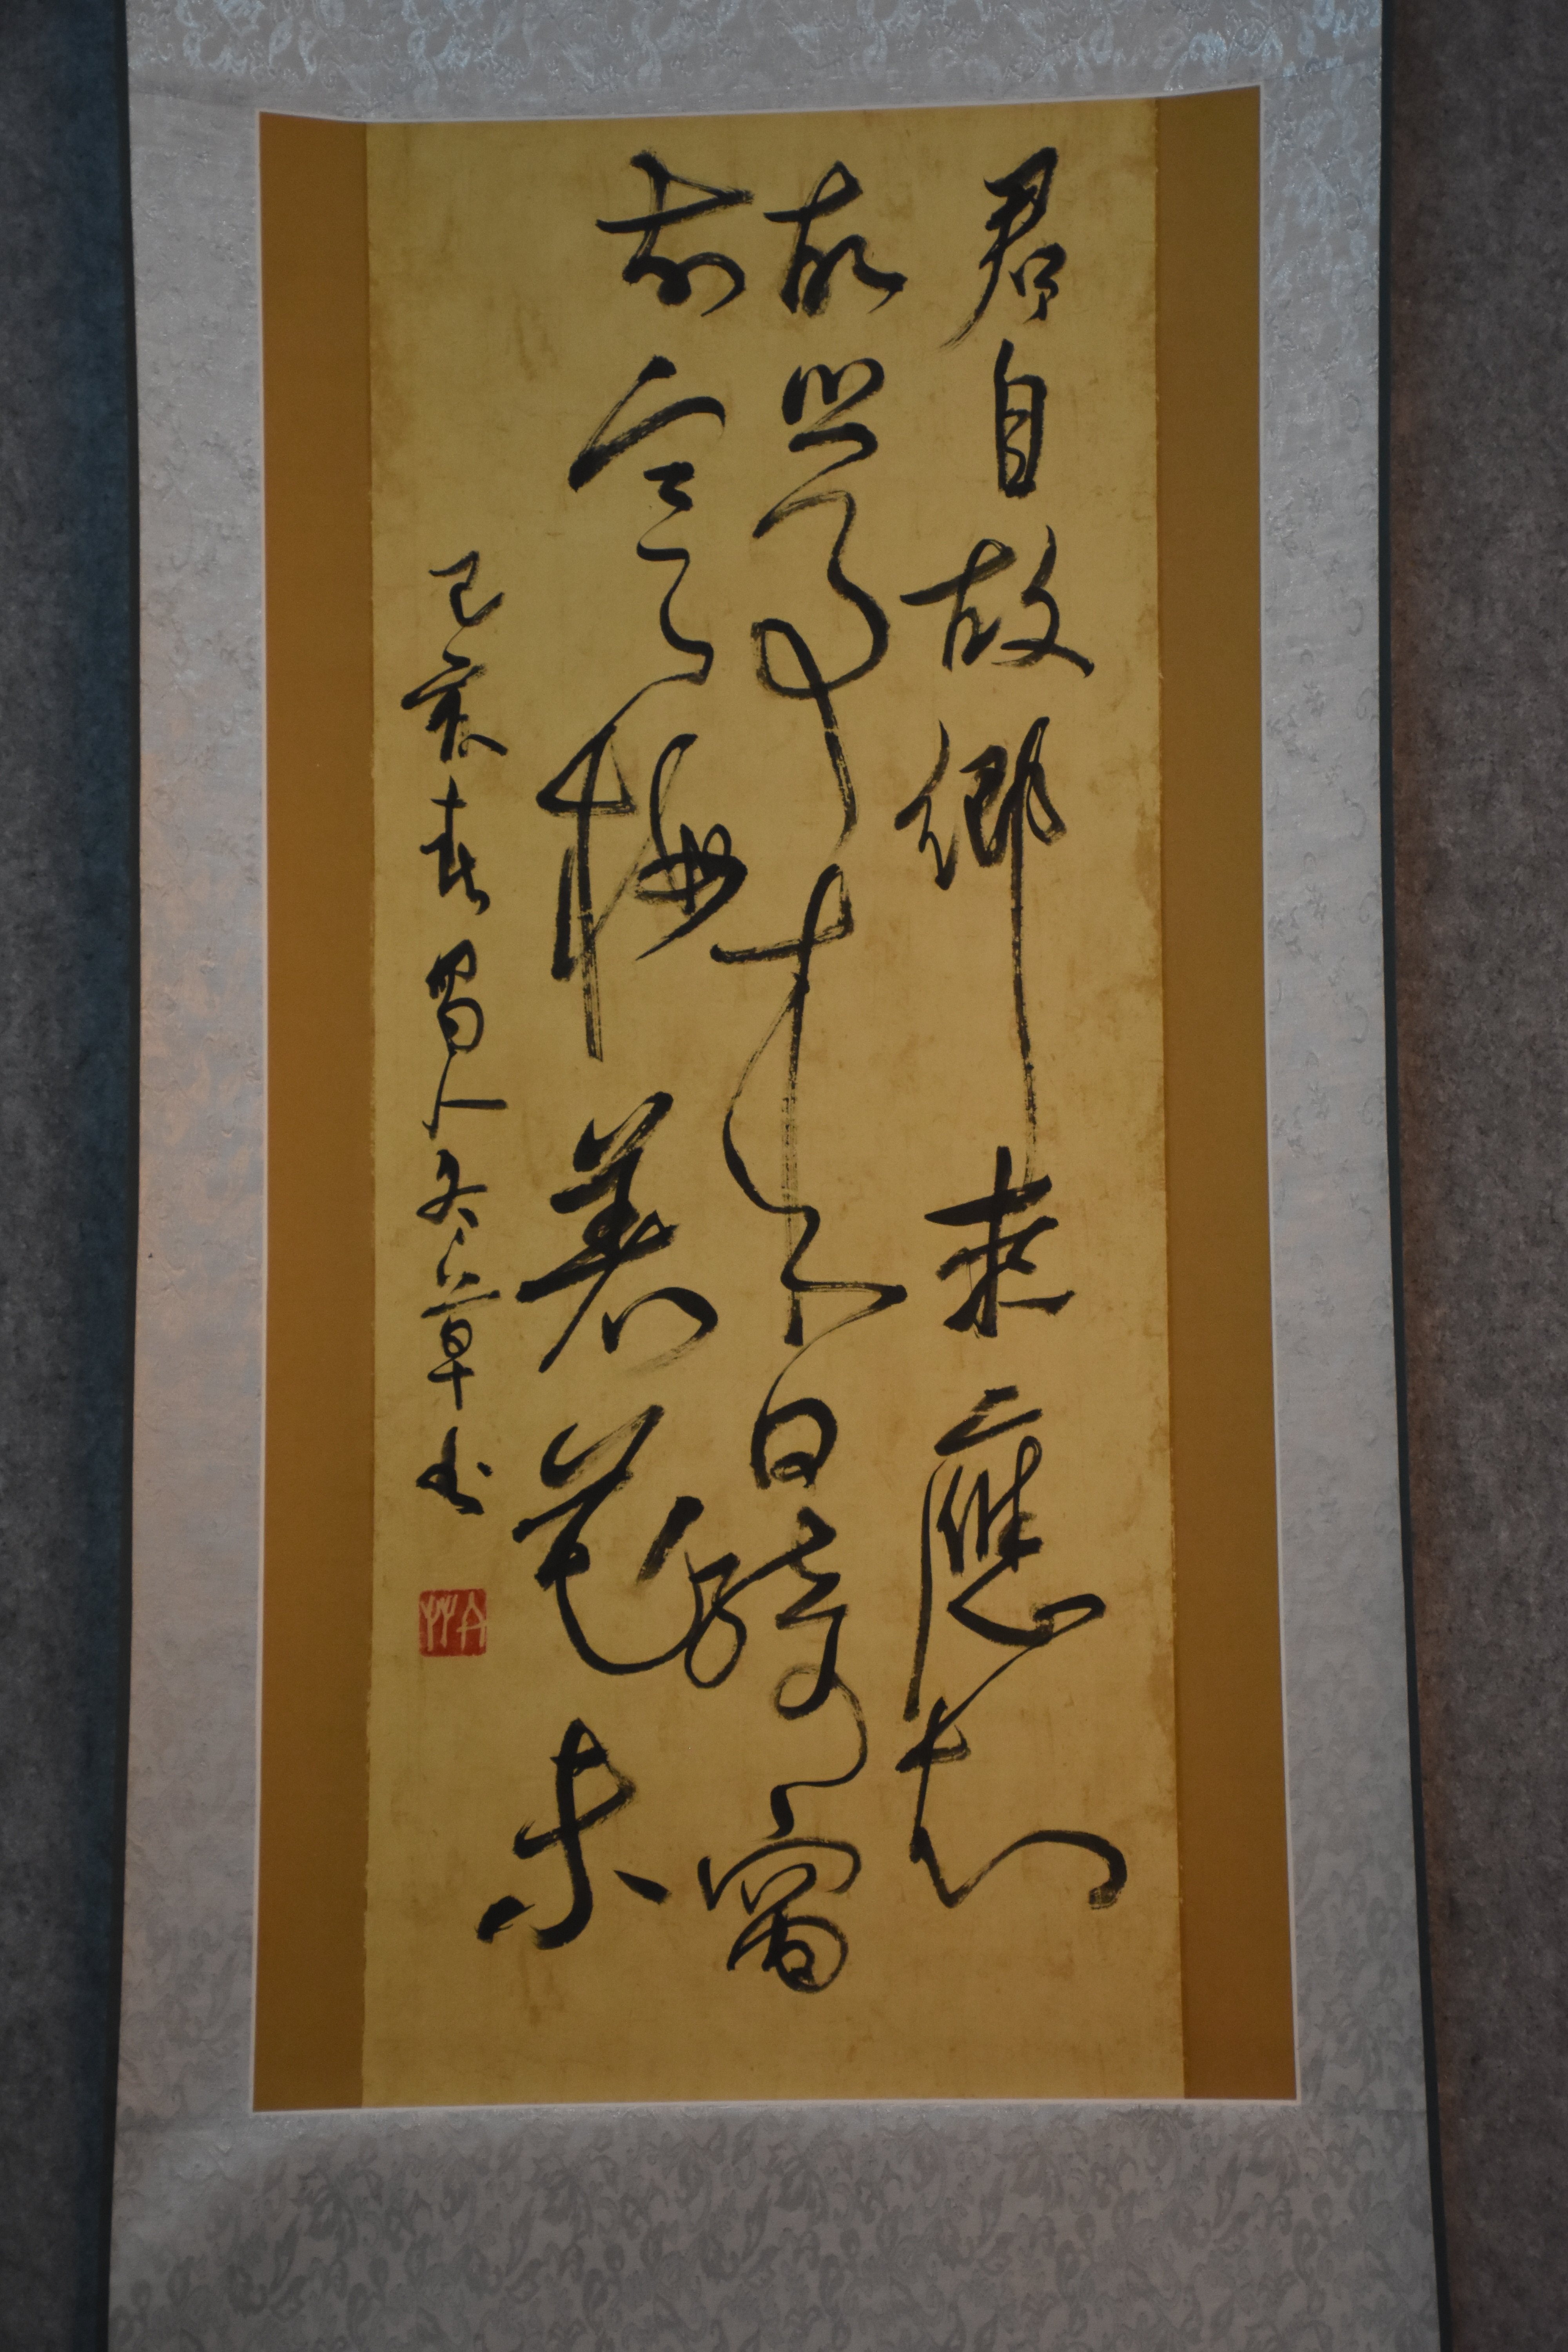 君自故鄉來應知
故鄉事來日綺窗
前寒梅著花未
己亥春蜀人冬草书